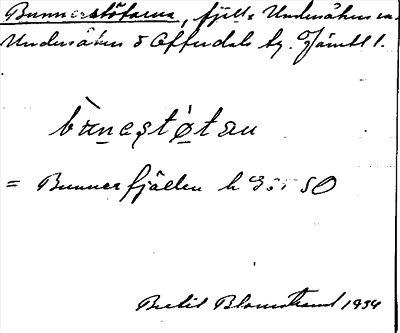 Bunnerstötarna, fjäll i Undersåkers sn
Undersåkers o Offerdals tg. Jämtl l.
bunestötan
= Bunnerfjällen h 50
Bertil Blomstrand 1934